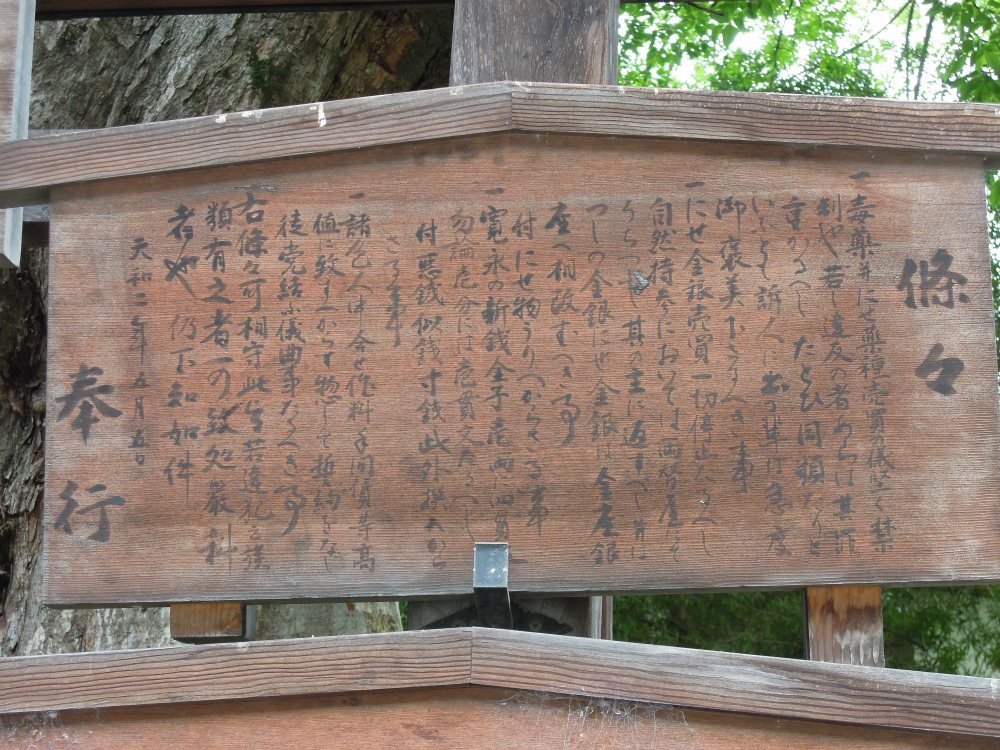 條々
一毒薬并にせ薬種売買の儀堅く禁
制也若し違反の者あらは其罪
重かるへしたとひ同類たりと
いふとも訴人に出る輩は急度
御褒美下さるへき事
一にせ金銀売買一切停止たるへし
自然持参におゐては両替屋にて
うちつふし其の主に返すへし并は
つしの金銀にせ金銀は金座銀
座へ相改むへき事
付にせ物うりへからさる事
一寛永の新銭金子壱両に四貫文
勿論壱分には壱貫文たるへし
付悪銭似銭寸銭此外撰へから
さる事
一諸色人申合せ作料手間賃等高
値に致すへからす惣して誓約をなし
徒党結ふ儀曲事なるへき事
右條々可相守此旨若違犯之族
類有之者可致処厳科
者也仍下知如件
天和二年五月五日
奉行